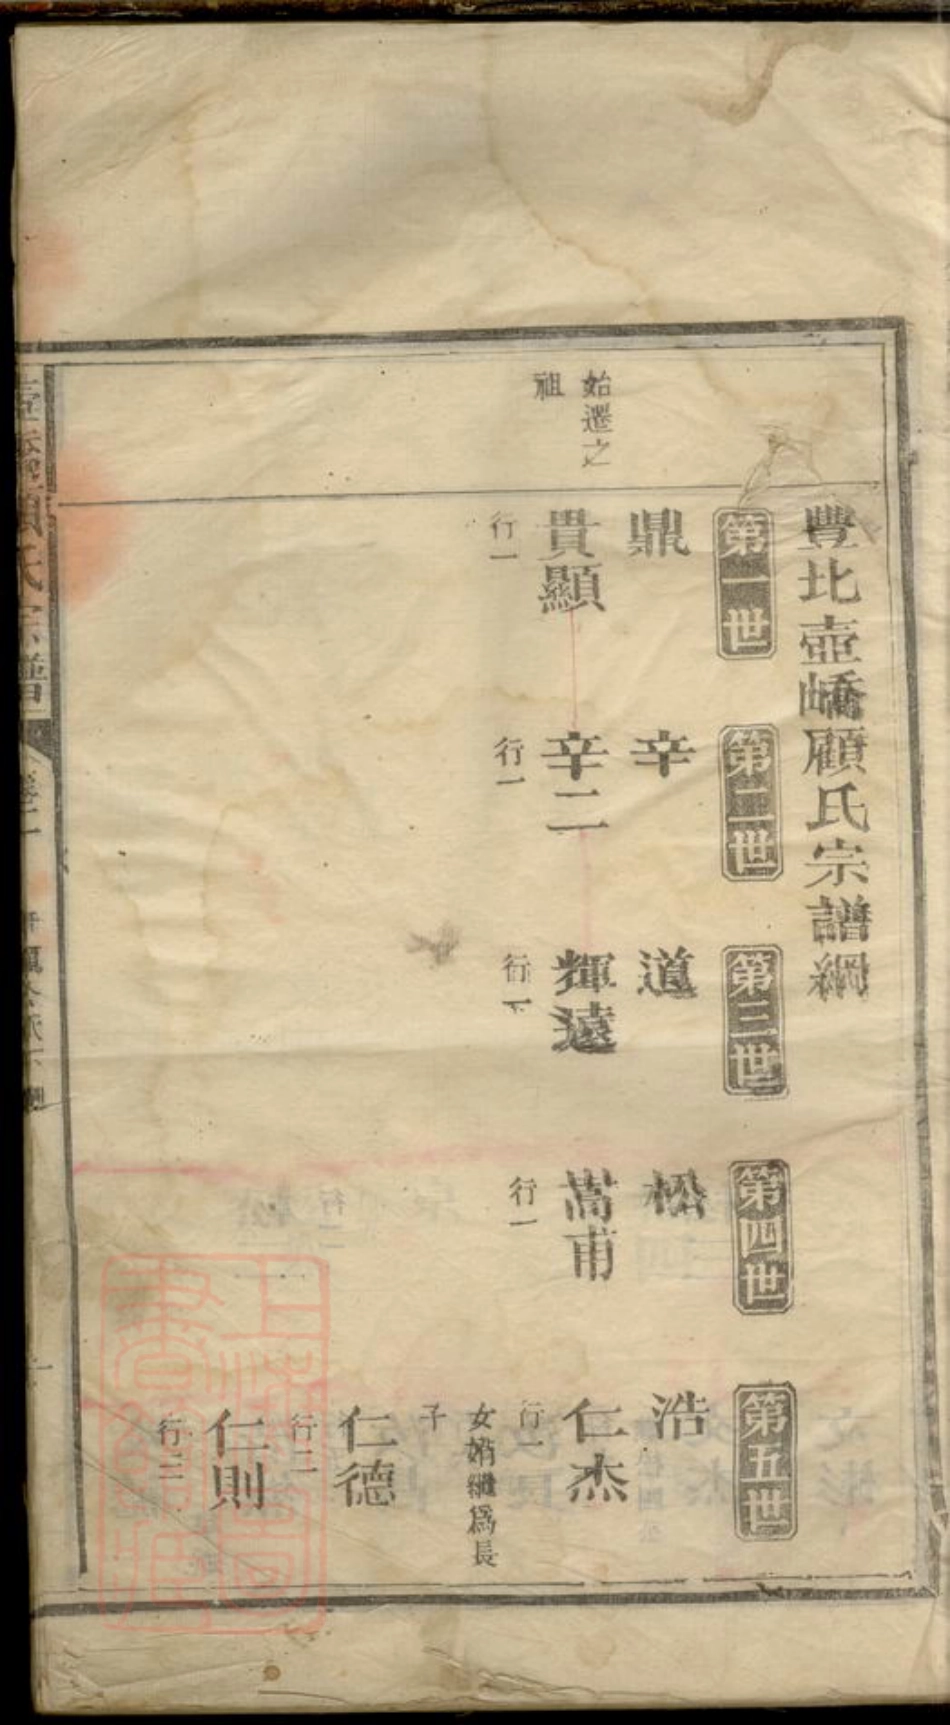 豐北壺嶠顧氏宗譜綱
第一世
第二世
第三世
第四世
第五世
鼎
辛
道
松
浩
始遷之
祖
貴顯
行一
辛二
行一
輝遠
行一
嵩甫
行一
仁杰
行一
女婿繼爲長
子
仁德
行二
仁則
行三
壺嶠顧氏宗譜
卷二
上海圖
書館藏